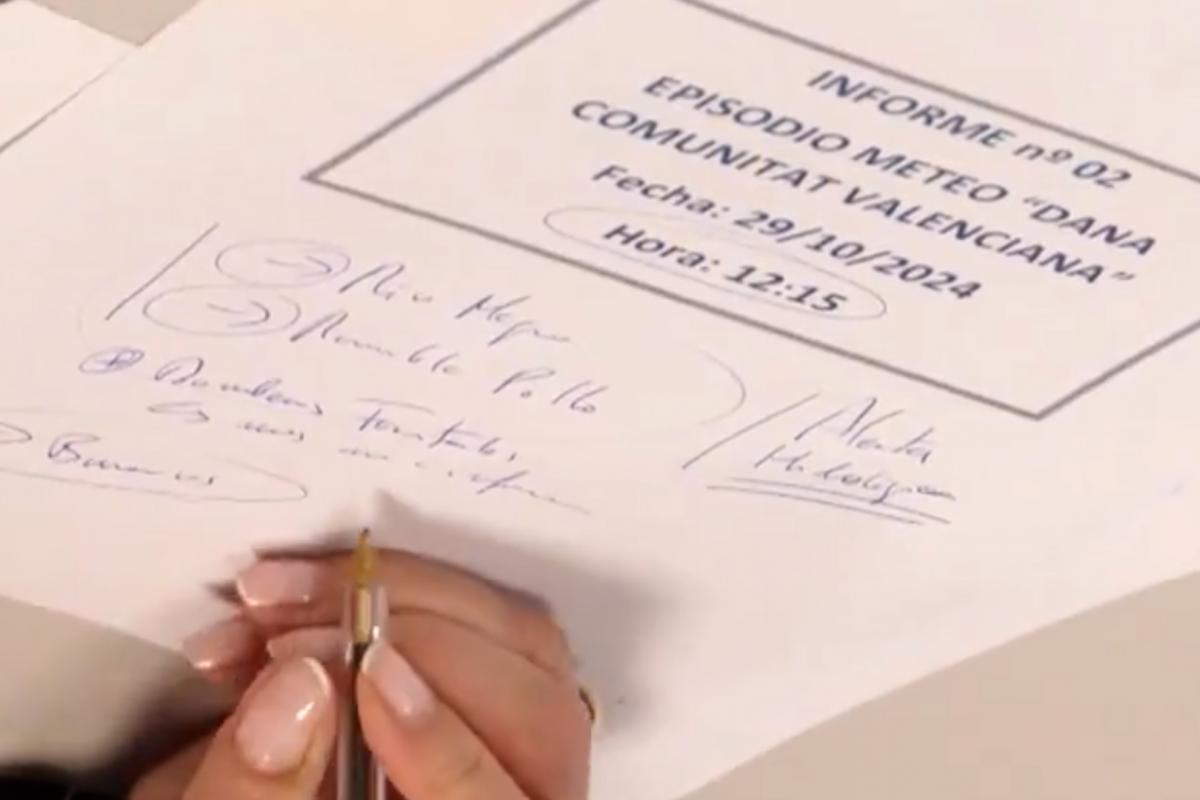 INFORME nº 02
EPISODIO METEO “DANA
COMUNITAT VALENCIANA”
Fecha: 29/10/2024
Hora: 12:15
→ Rio Magro
→ Rambla Pollo
Bomberos Forestales,
Alerta
Hidrológica